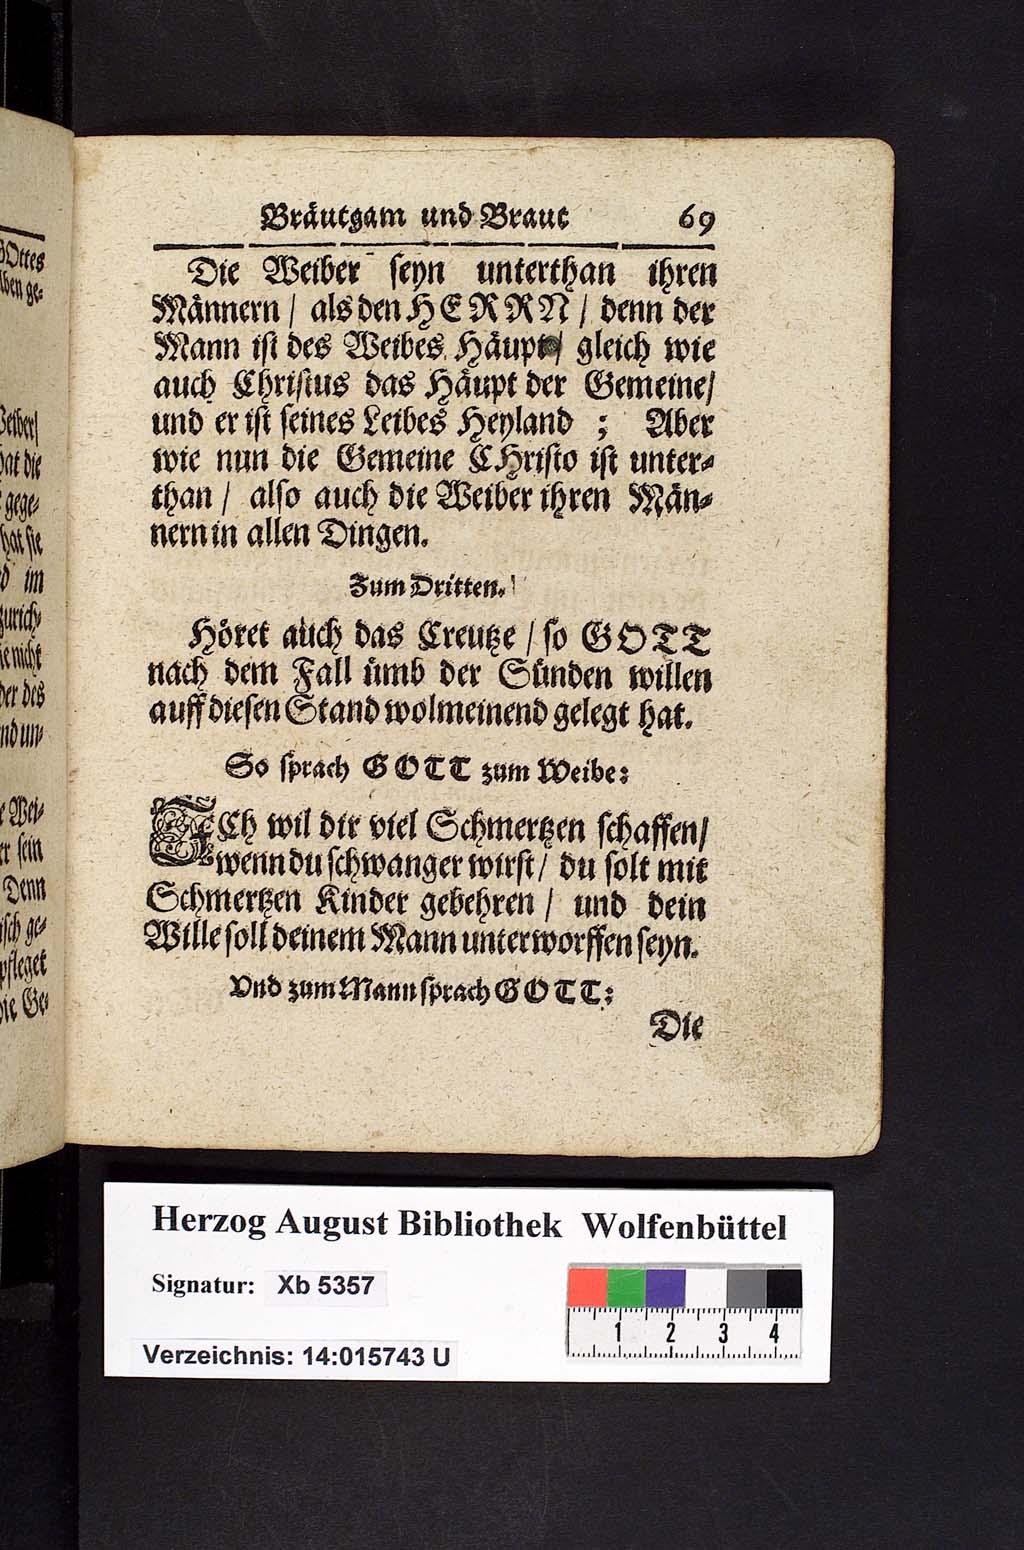 Bräutgam und Braut 69
Die Weiber seyn unterthan ihren
Männern / als den HERRN / denn der
Mann ist des Weibes Häupt / gleich wie
auch Christus das Häupt der Gemeine /
und er ist seines Leibes Heyland ; Aber
wie nun die Gemeine CHristo ist unter-
than / also auch die Weiber ihren Män-
nern in allen Dingen.
Zum Dritten.
Höret auch das Creutze / so GOTT
nach dem Fall ümb der Sünden willen
auff diesen Stand wolmeinend gelegt hat.
So sprach GOTT zum Weibe:
ICh wil dir viel Schmertzen schaffen /
wenn du schwanger wirst / du solt mit
Schmertzen Kinder gebehren / und dein
Wille soll deinem Mann unterworffen seyn.
Vnd zum Mann sprach GOTT:
Die
GOttes
ge-
Weiber /
hat die
gege-
hat sie
im
zurich-
nicht
der des
und un-
Wei-
sein
Denn
ge-
pfleget
die Ge-
Herzog August Bibliothek Wolfenbüttel
Signatur: Xb 5357
Verzeichnis: 14:015743 U
1 2 3 4